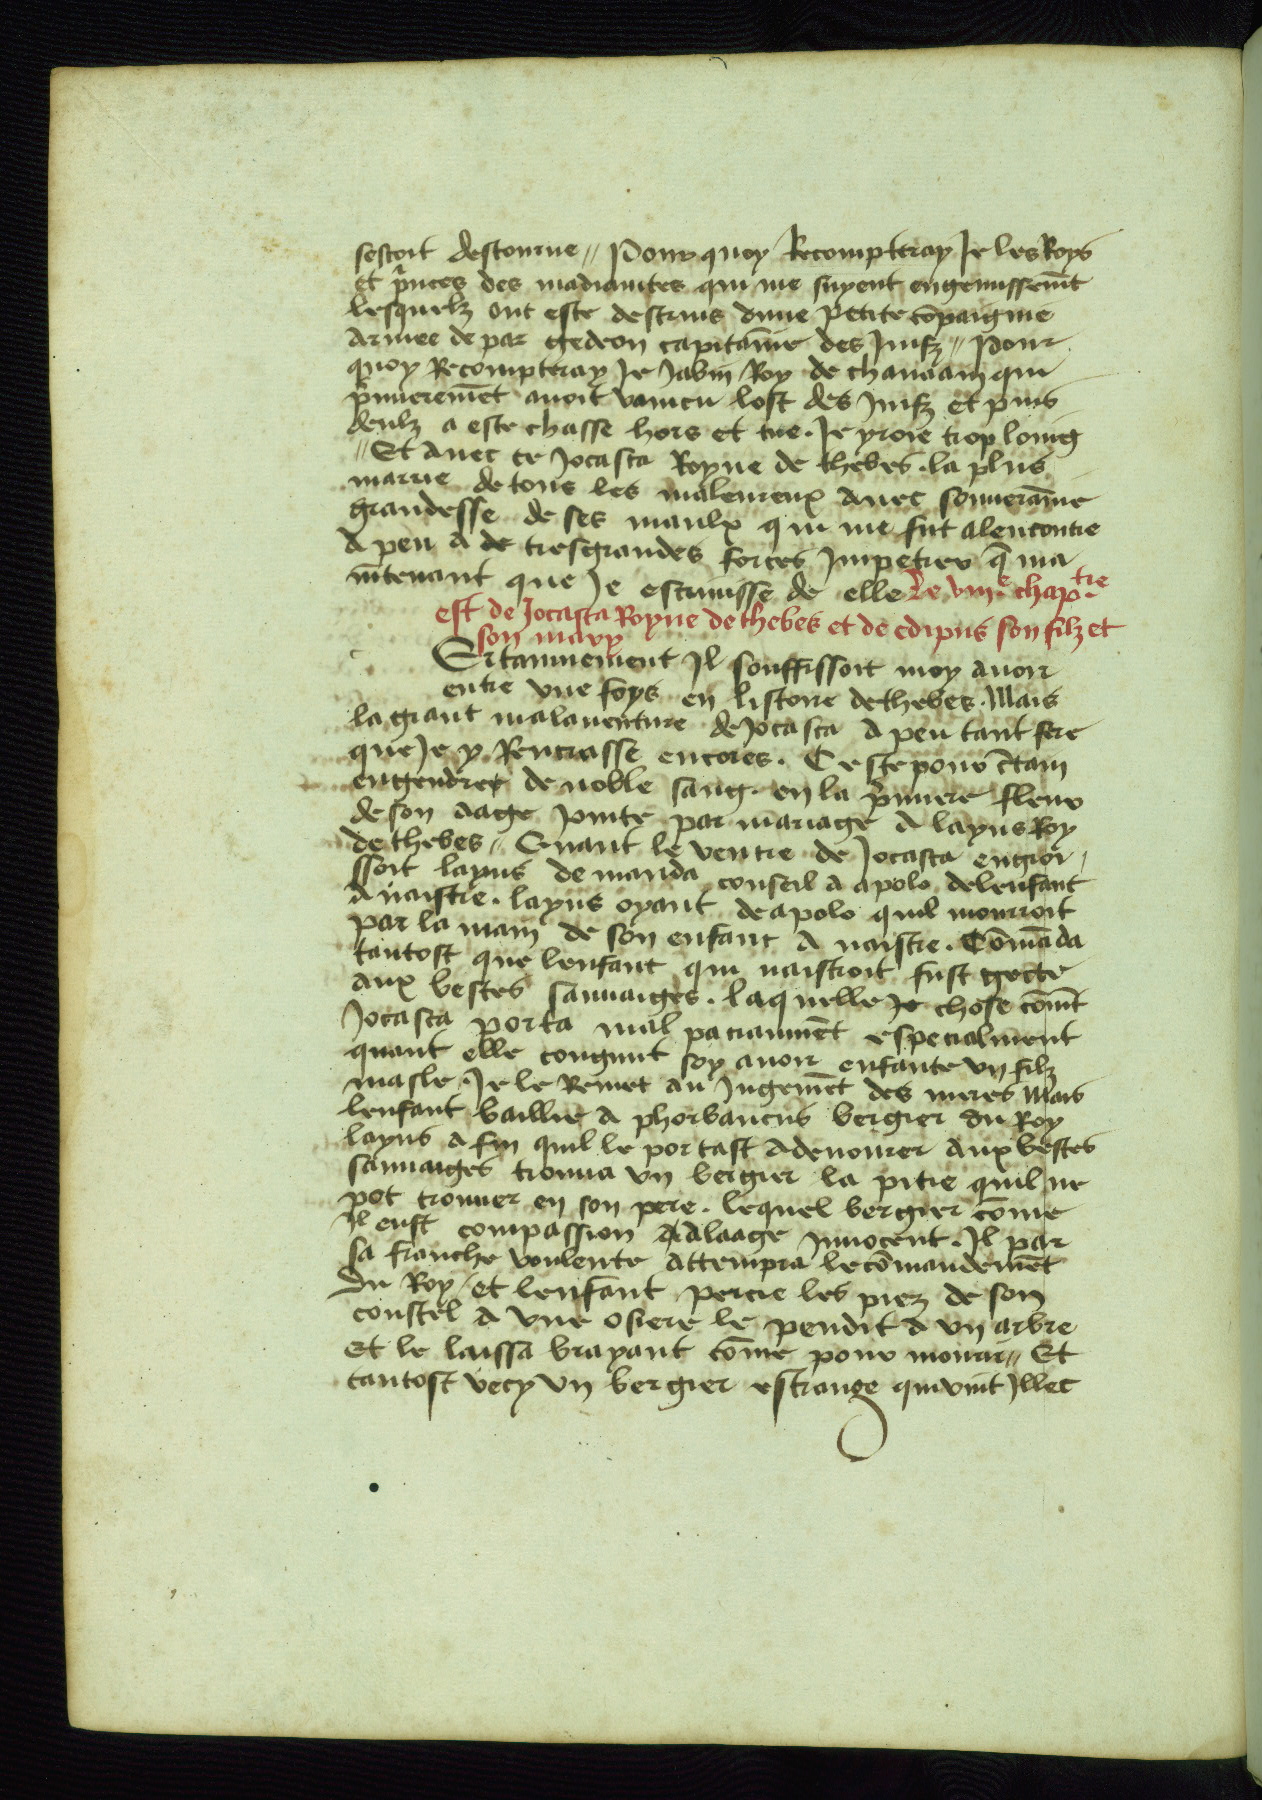 sestoit destourne // Pour quoy Recompteray Je les Roys
et p̃nces des madianites qui me suyent en gemissem̃t
lesquelz ont este destruis dune petite cõpaignie
armee de par gedeon capitaine des Juifz // Pour
quoy Recompteray Je Jabin Roy de chanaam qui
p̃mierem̃et auoit vaincu lost des Juifz et puis
deulz a este chasse hors et tue. Je yroie trop loing
// Et auec ce Jocasta Royne de thebes. la plus
marrie de tous les maleureux auec souueraine
grandesse de ses maulx qui me fut alencontre
a peu a de tresgrandes forces Impetrer q̃ ma
intenant que Je escrinisse de elle Le viiie chaptre
est de Jocasta Royne de thebes et de edipus son filz et
son mary
Ertainnement Il souffissoit moy auoir
entre vne foys en listoire de thebes. Mais
la grant malauenture de Jocasta a peu tant fere
que Je y Rentrasse encores. Ceste pour c̃tain
engendree de noble sang. en la p̃miere fleur
de son aage Jointe par mariage a layus Roy
de thebes // Quant le ventre de Jocasta engroi
ssoit layus demanda conseil a apolo de lenfant
a naistre. layus oyant de apolo quil mourroit
par la main de son enfant a naistre. Cõmãda
tantost que lenfant qui naistroit fust gecte
aux bestes sauuaiges. laquelle chose com̃t
Jocasta porta mal paciamm̃et especialment
quant elle congnut soy auoir enfante vn filz
masle. Je le Remet au Jugem̃et des meres Mais
lenfant baillie a phorbancus bergier du Roy
layus a fin quil le portast a deuourer aux bestes
sauuaiges trouua vn bergier la pitie quil ne
pot trouuer en son pere. lequel bergier cõme
Il eust compassion a laage Innocent. Il par
sa franche voulente attempra le cõmandem̃et
du Roy / et lenfant percie les piez de son
coustel a vne osiere le pendit a vn arbre
Et le laissa brayant cõme pour mourir // Et
tantost vecy vn bergier estrange qui vint Jllec